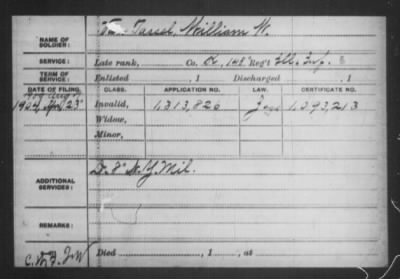 Tassel, William W.
NAME OF SOLDIER:
SERVICE: Late rank, Co. A, 148 Reg't Ill. Inf.
TERM OF SERVICE: Enlisted , 1 Discharged , 1
DATE OF FILING. CLASS. APPLICATION NO. LAW. CERTIFICATE NO.
1904 23 Invalid, 1,313,826 1,093,213
Widow,
Minor,
ADDITIONAL SERVICES: N.Y. Mil.
REMARKS:
Died , 1 , at